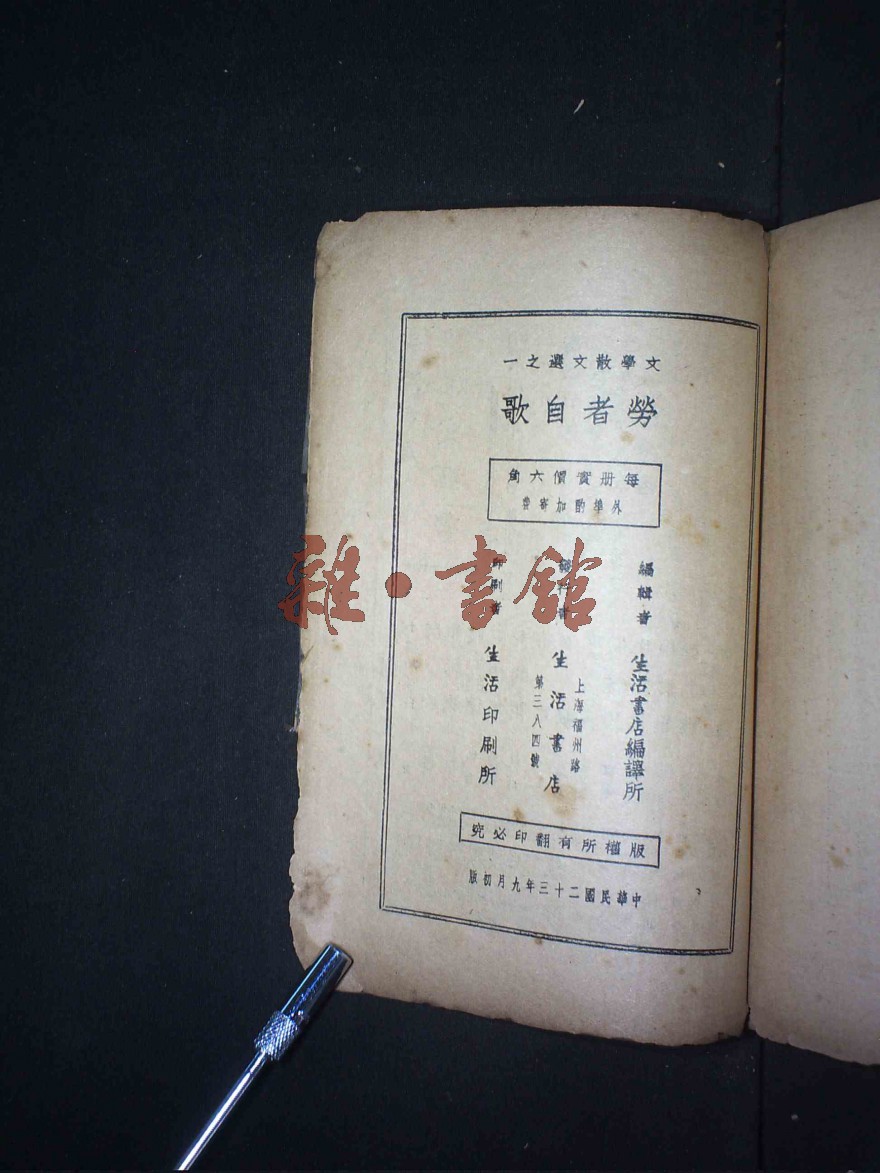 文學散文選之一
勞者自歌
每册實價六角
外埠酌加寄費
編輯者 生活書店編譯所
生活書店
上海福州路
第三八四號
印刷者 生活印刷所
版權所有翻印必究
中華民國二十三年九月初版
雜·書館